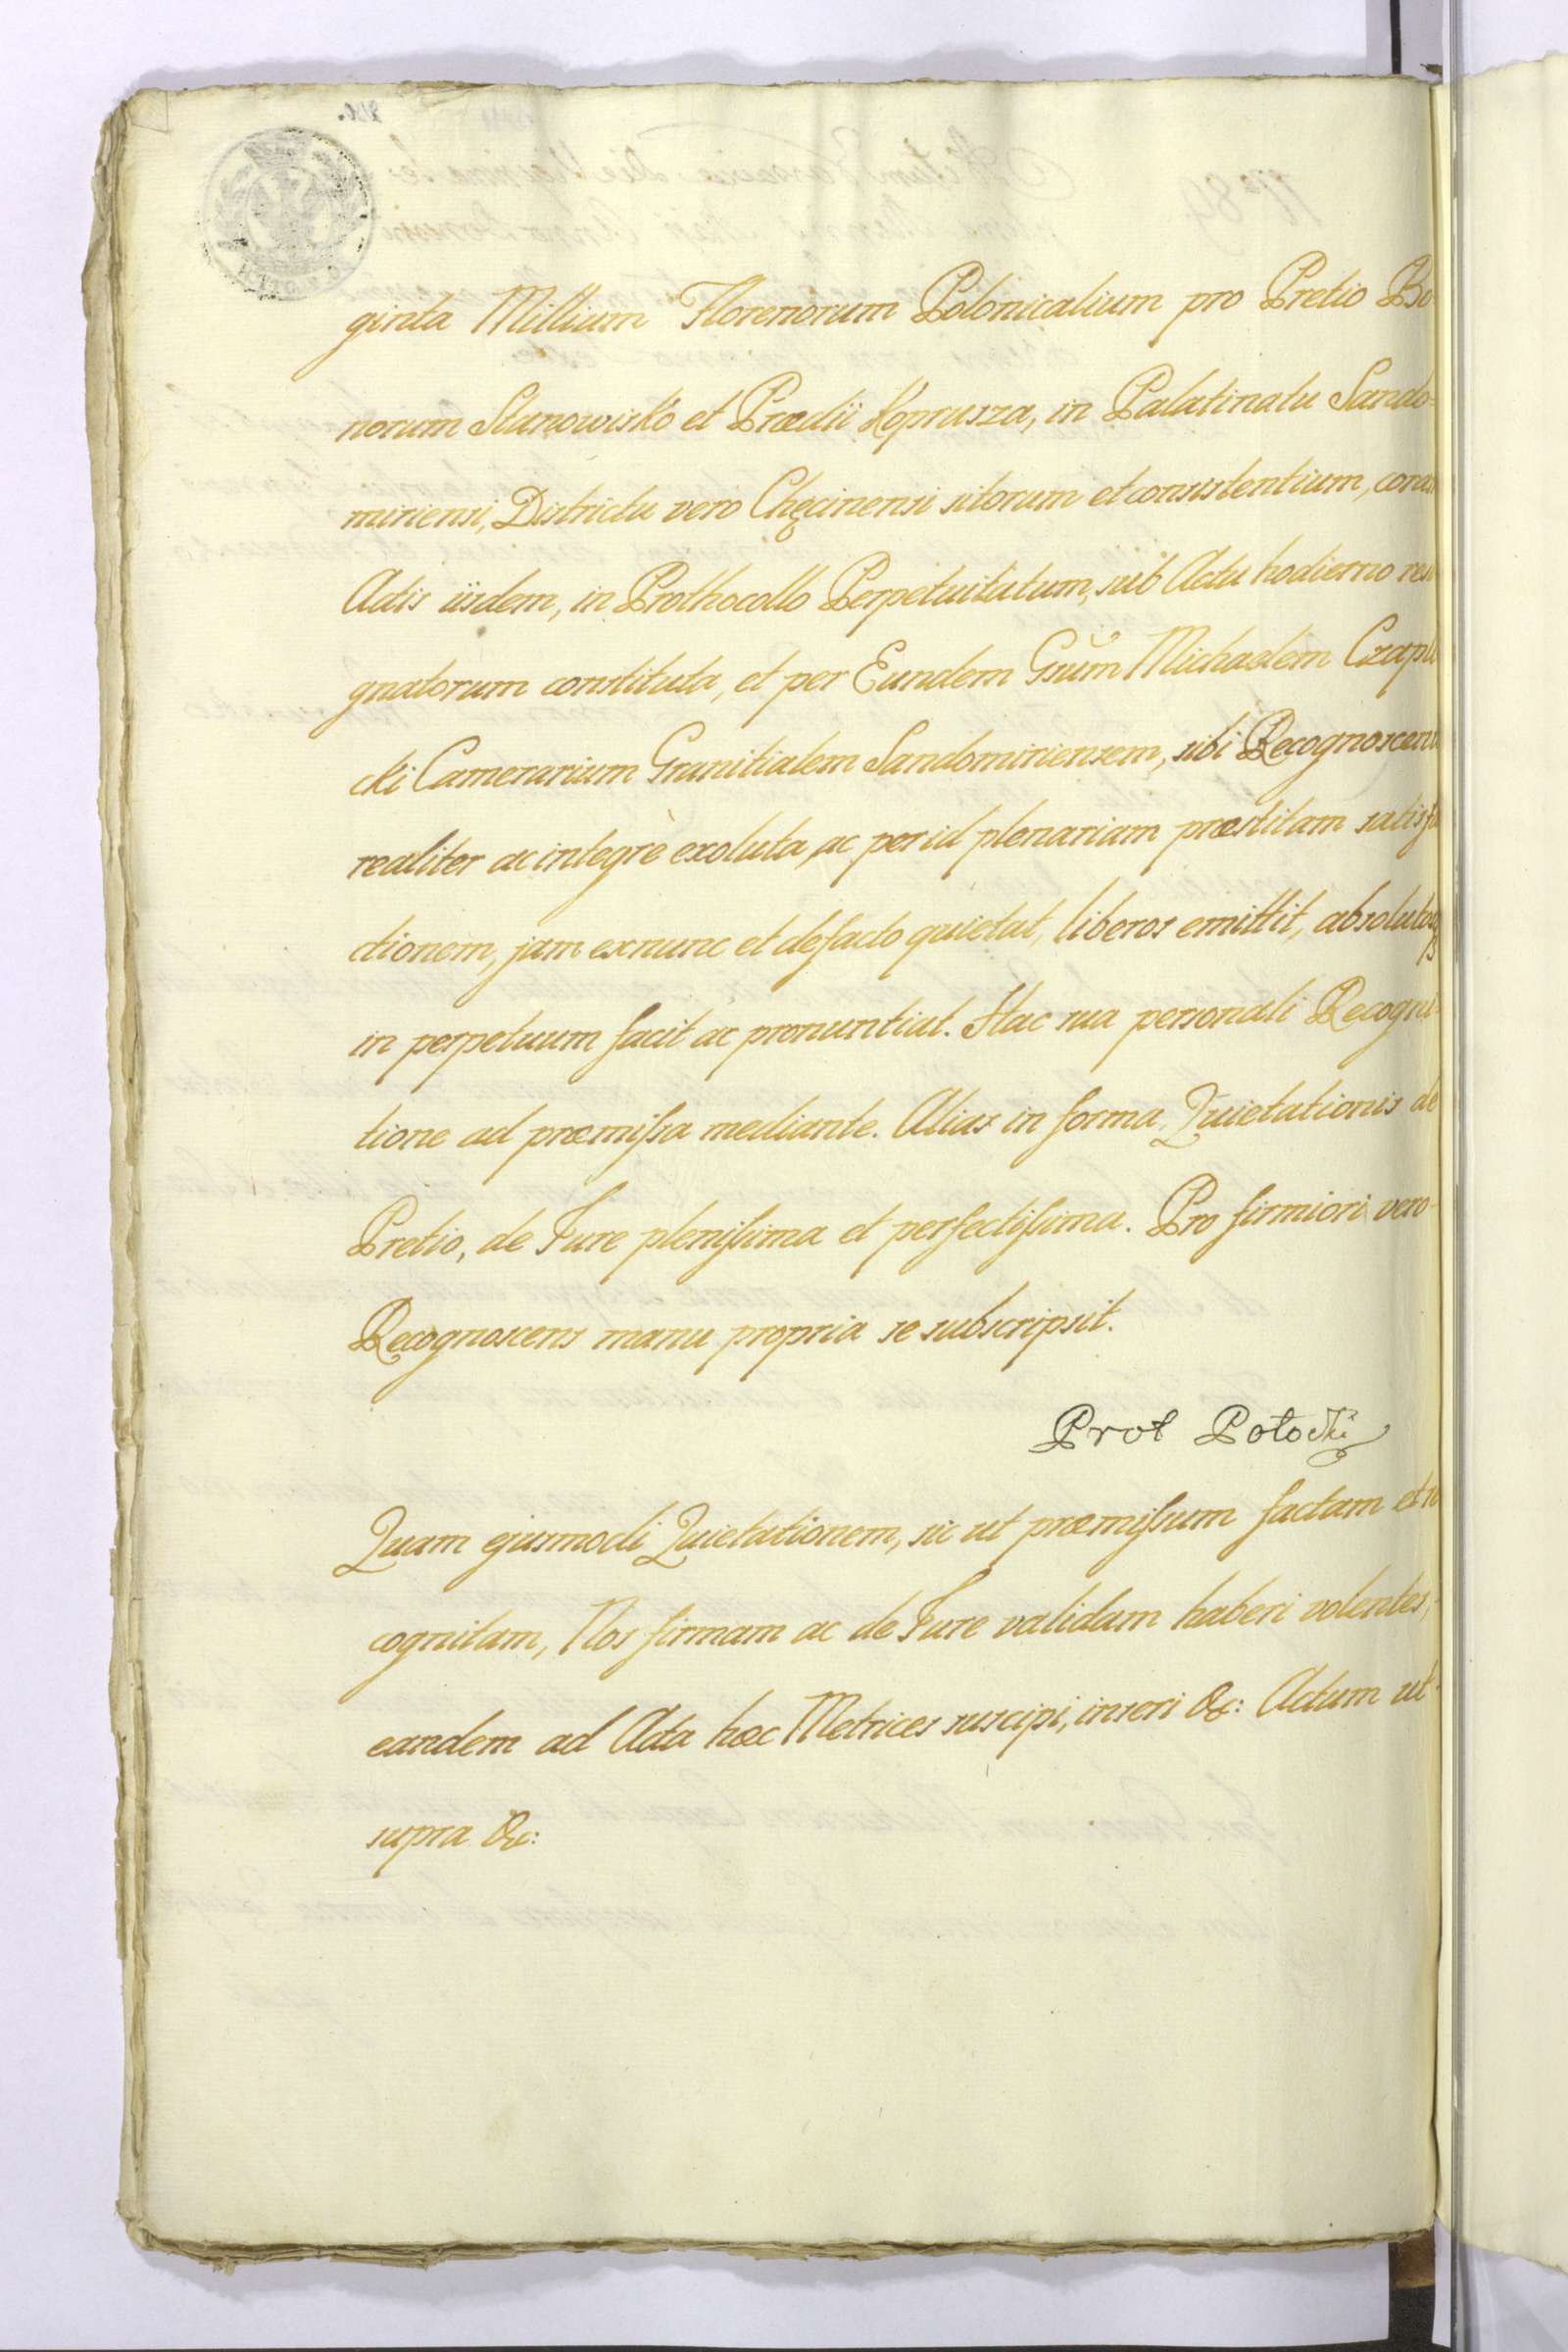 ginta Millium Florenorum Polonicalium pro Pretio Bo
norum Stanowisko et Prædii Koprusza, in Palatinatu Sando-
miriensi, Districtu vero Chęcinensi sitorum et consistentium, coram
Actis iisdem, in Prothocollo Perpetuitatum, sub Actu hodierno resi
gnatorum constituta, et per Eundem Gsum Michaelem Czapli
cki Camerarium Granitialem Sandomiriensem, sibi Recognoscenti
realiter ac integrè exoluta, ac per id plenariam præstitam satisfa
ctionem, jam exnunc et defacto quietat, liberos emittit, absolutosq3
in perpetuum facit ac pronuntiat. Hac sua personali Recogni-
tione ad præmissa mediante. Alias in forma Quietationis de
Pretio, de Jure plenissima et perfectissima. Pro firmiori vero
Recognoscens manu propria se subscripsit.
Prot Potocki
Quam ejusmodi Quietationem, sic ut præmissum factam et re
cognitam, Nos firmam ac de Jure validam haberi volentes,
eandem ad Acta hæc Metrices suscipi, inseri &c: Actum ut
supra &c: